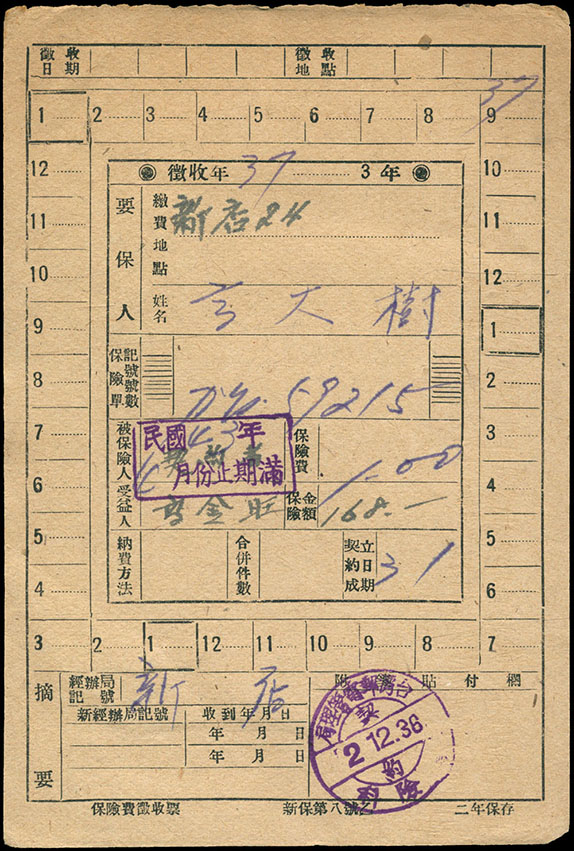 徵收日期 徵收地點
37
1 2 3 4 5 6 7 8 9
12 10
11 11
10 12
9 1
8 2
7 3
6 4
5 5
4 6
3 2 1 12 11 10 9 8 7
徵收年 37 3年
要保人
繳費地點 新店24
姓名 大樹
保險單記號號數 59215
被保險人
民國 43年
月份止期滿
保險費 1.00
受益人 金旺
保險金額 168.—
納費方法
合併件數
契約成立日期 31
摘要
經辦局記號 新店
附 貼付欄
新經辦局記號 收到年月日
年 月 日
年 月 日
台灣郵電管理局
契約
2.12.36
保險
保險費徵收票 新保第八號乙 二年保存